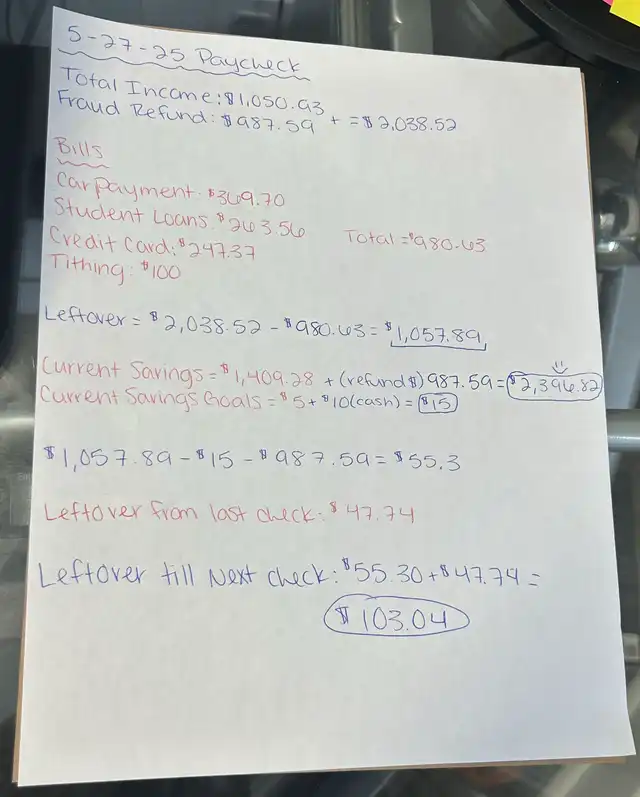 5-27-25 Paycheck
Total Income: $1,050.93
Fraud Refund: $987.59 + = $2,038.52
Bills
Car payment: $369.70
Student Loans: $263.56
Credit Card: $247.37 Total = $980.63
Tithing: $100
Leftover = $2,038.52 - $980.63 = $1,057.89
Current Savings = $1,409.28 + (refund $) 987.59 = $2,396.82
Current Savings Goals = $5 + $10 (cash) = $15
$1,057.89 - $15 - $987.59 = $55.3
Leftover from last check: $47.74
Leftover till Next check: $55.30 + $47.74 =
$103.04